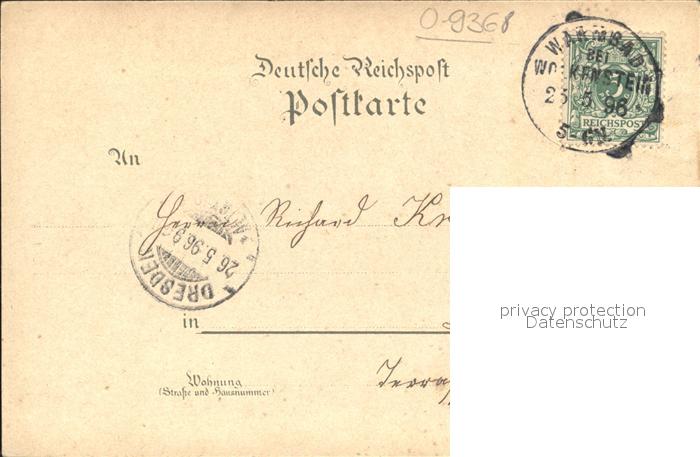 O-9368
WARMBAD
BEI
WOLKENSTEIN
25 5 96
5-6N.
REICHSPOST
Deutsche Reichspost
Postkarte
An
Herrn Richard Kr
DRESDEN
26 5 96 9
in
Wohnung
(Straße und Hausnummer)
Terra
privacy protection
Datenschutz